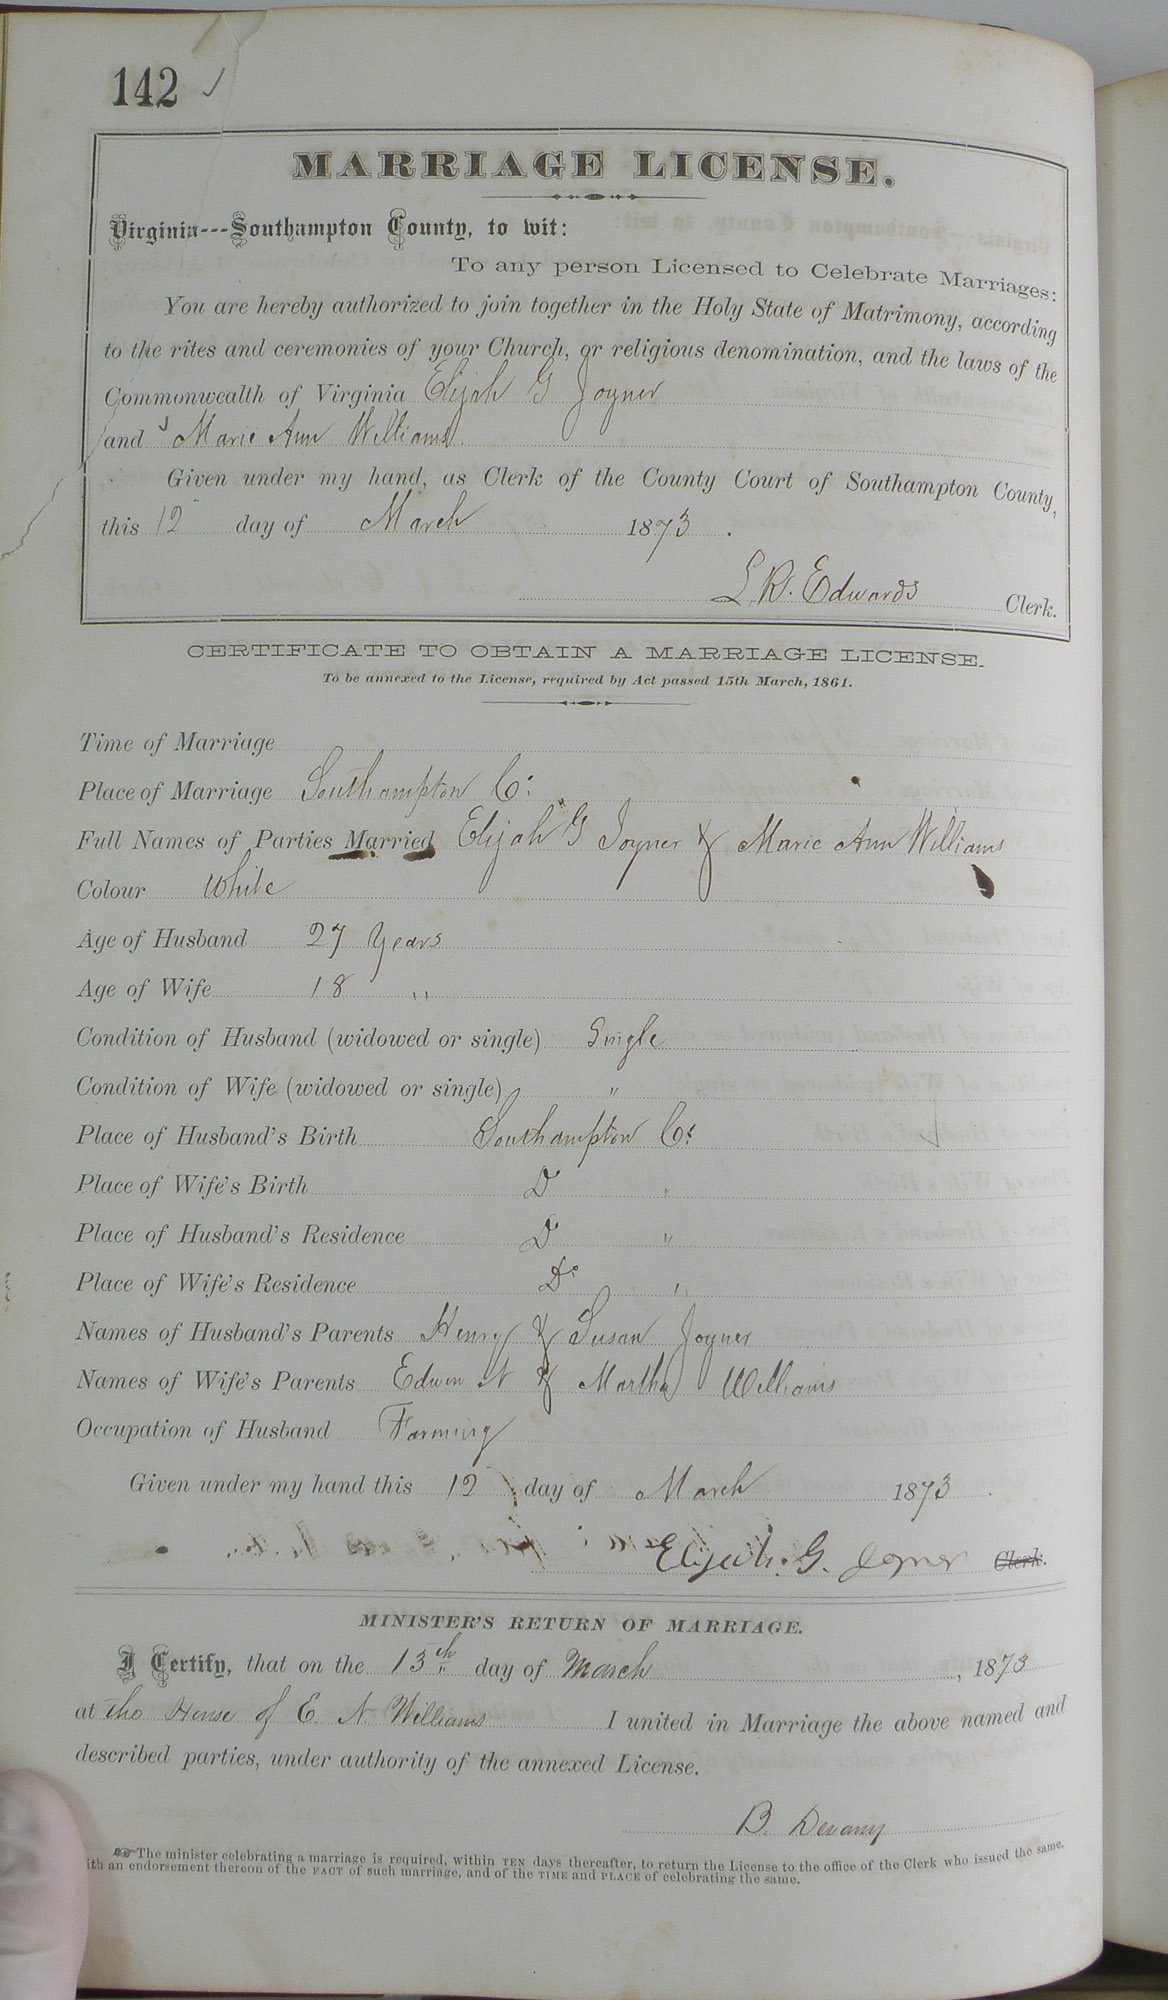 142 ✓
MARRIAGE LICENSE.
Virginia---Southampton County, to wit:
To any person Licensed to Celebrate Marriages:
You are hereby authorized to join together in the Holy State of Matrimony, according
to the rites and ceremonies of your Church, or religious denomination, and the laws of the
Commonwealth of Virginia Elijah G Joyner
and Marie Ann Williams.
Given under my hand, as Clerk of the County Court of Southampton County,
this 12 day of March 1873.
L. R. Edwards Clerk.
CERTIFICATE TO OBTAIN A MARRIAGE LICENSE.
To be annexed to the License, required by Act passed 15th March, 1861.
Time of Marriage
Place of Marriage Southampton Co:
Full Names of Parties Married Elijah G Joyner & Marie Ann Williams
Colour White
Age of Husband 27 Years
Age of Wife 18 "
Condition of Husband (widowed or single) Single
Condition of Wife (widowed or single) "
Place of Husband's Birth Southampton Co:
Place of Wife's Birth Do "
Place of Husband's Residence Do "
Place of Wife's Residence Do "
Names of Husband's Parents Henry & Susan Joyner
Names of Wife's Parents Edwin N & Martha Williams
Occupation of Husband Farming
Given under my hand this 12 day of March 1873.
Elijah. G. Joyner Clerk.
MINISTER'S RETURN OF MARRIAGE.
I Certify, that on the 13th day of March, 1873
at the House of E. N. Williams I united in Marriage the above named and
described parties, under authority of the annexed License.
B. Devany
The minister celebrating a marriage is required, within TEN days thereafter, to return the License to the office of the Clerk who issued the same,
ith an endorsement thereon of the FACT of such marriage, and of the TIME and PLACE of celebrating the same.